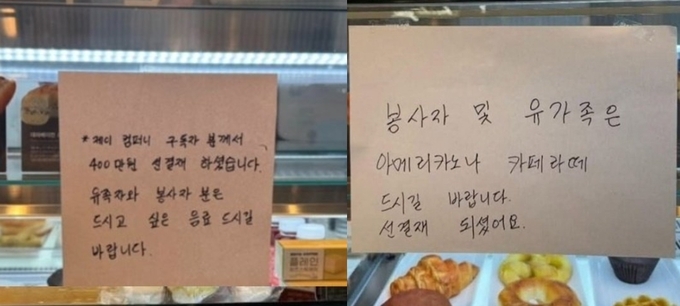 * 제이 컴퍼니 구독자 분께서
400만원 선결재 하셨습니다.
유족자와 봉사자 분은
드시고 싶은 음료 드시길
바랍니다.
플레인
봉사자 및 유가족은
아메리카노나 카페라떼
드시길 바랍니다.
선결재 되셨어요.